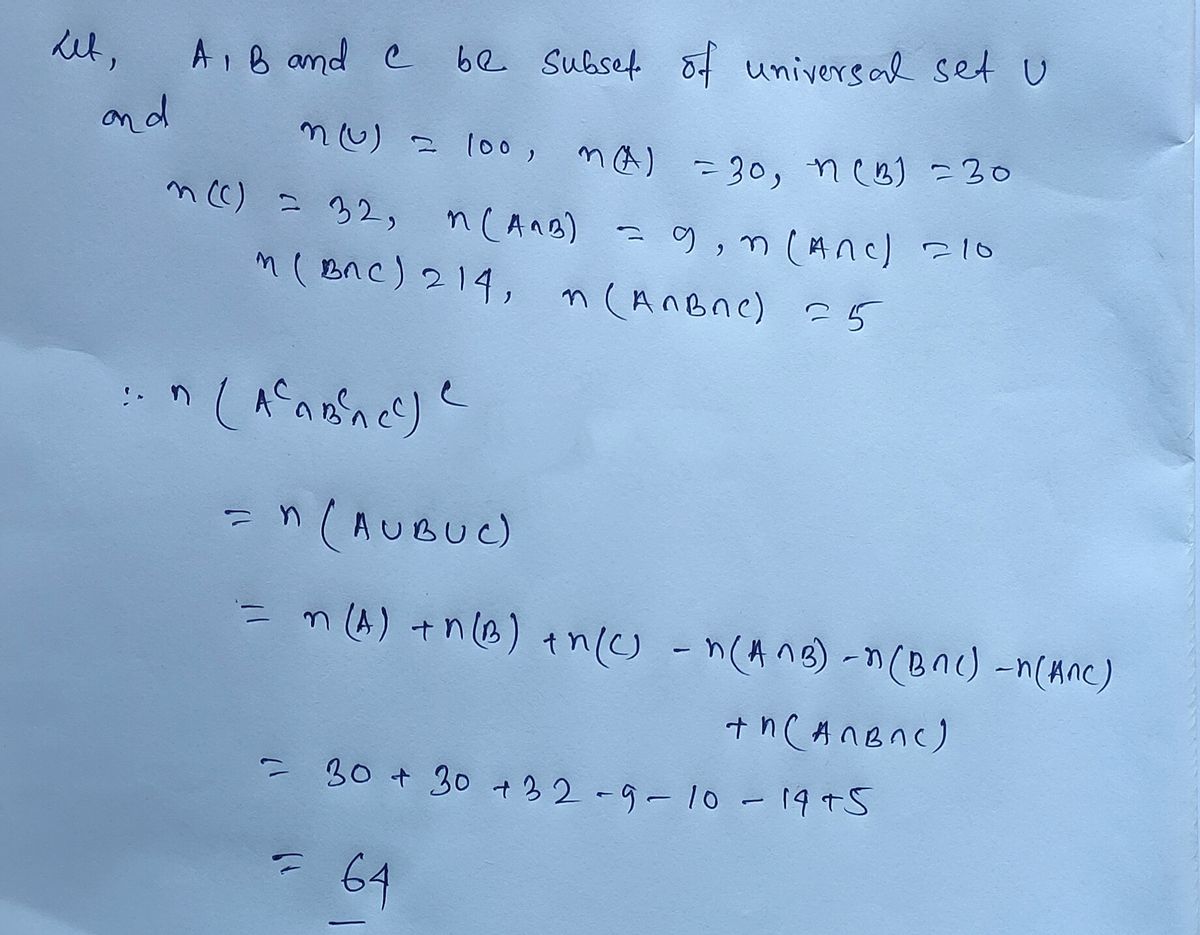 Let, A, B and C be subset of universal set U
and n(U) = 100, n(A) = 30, n(B) = 30
n(C) = 32, n(A∩B) = 9, n(A∩C) = 10
n(B∩C) = 14, n(A∩B∩C) = 5
∴ n(Aᶜ∩Bᶜ∩Cᶜ)ᶜ
= n(A∪B∪C)
= n(A) + n(B) + n(C) - n(A∩B) - n(B∩C) - n(A∩C)
+ n(A∩B∩C)
= 30 + 30 + 32 - 9 - 10 - 14 + 5
= 64